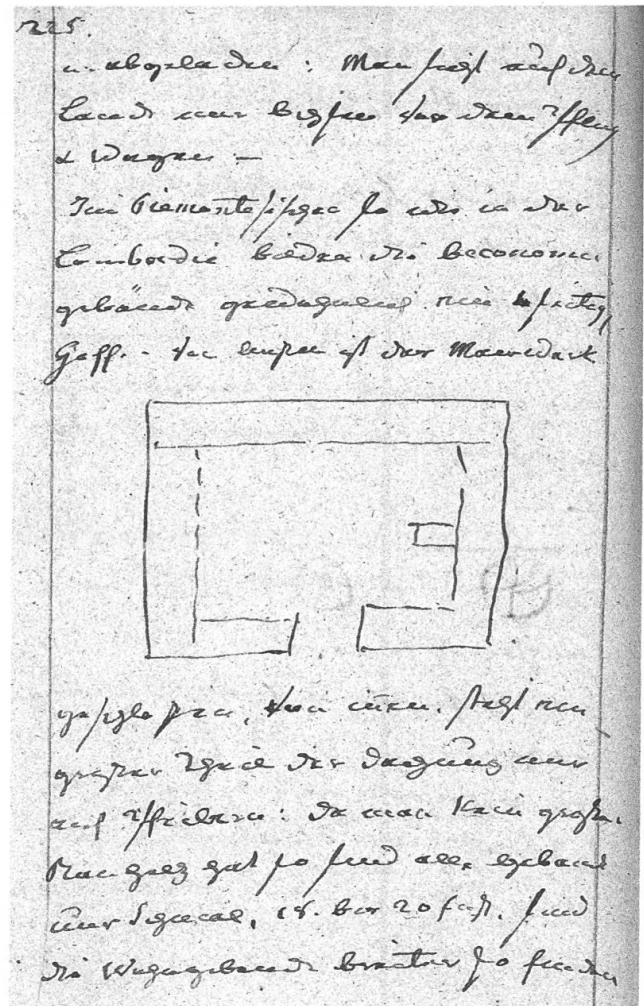 225.
u. abgeladen: Man sieht auf dem
Lande nur bey den
& Wagen —
Im Piemontesischen so wie in der
Lombardie bilden die Oeconomie
gebäude ein
Hoff. - Von aussen ist das Mauerwerk
geschlossen, von innen, steht ein
grosser Theil der Dachung nur
auf Pfeilern: da man kein grosses
Bauholz hat so sind alle Gebäude
nur schmal, 18. bis 20 fuss. sind
die Wohngebäude breiter so finden